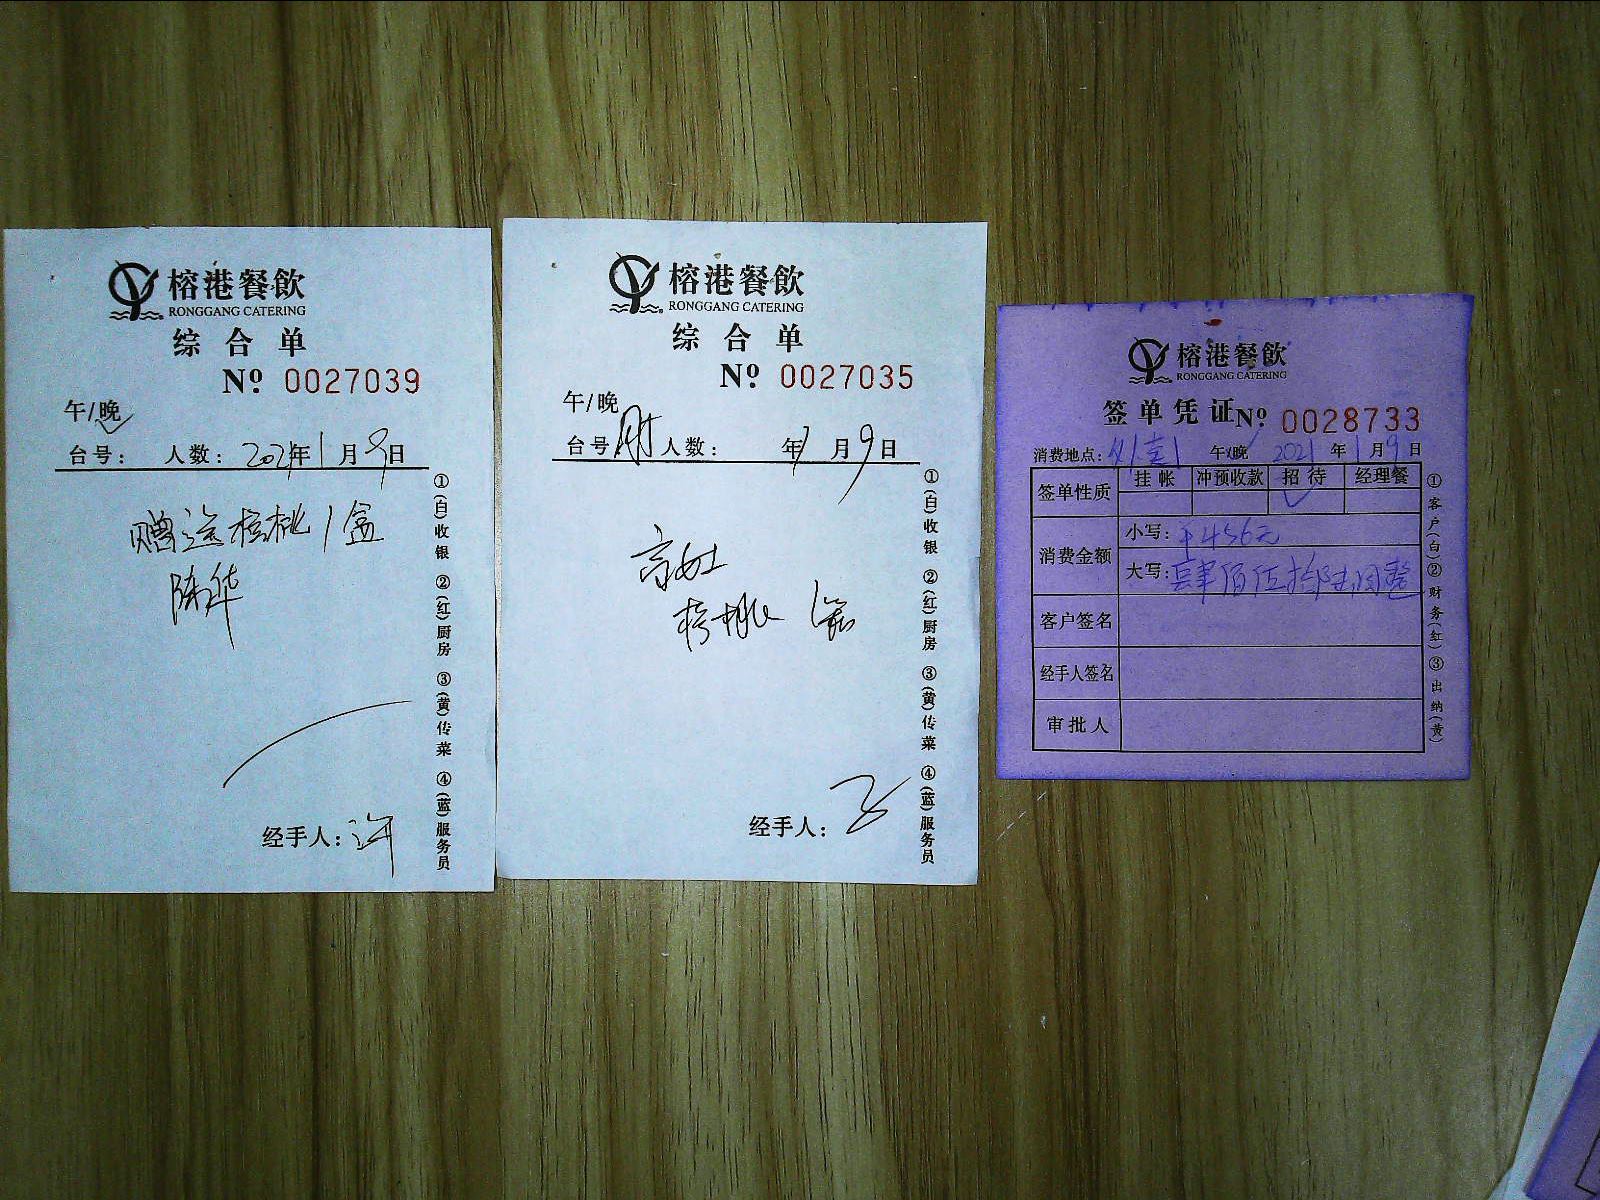 榕港餐飲
RONGGANG CATERING
综合单
Nº 0027039
午/晚
台号: 人数: 2021年1月9日
赠送核桃1盒
陈华
经手人: 许
①(白)收银 ②(红)厨房 ③(黄)传菜 ④(蓝)服务员
榕港餐飲
RONGGANG CATERING
综合单
Nº 0027035
午/晚
台号 人数: 年1月9日
核桃1盒
经手人:
①(白)收银 ②(红)厨房 ③(黄)传菜 ④(蓝)服务员
榕港餐飲
RONGGANG CATERING
签单凭证Nº 0028733
消费地点: 午/晚 2021年1月9日
签单性质 挂帐 冲预收款 招待 经理餐
消费金额 小写: ¥456元
大写: 肆佰伍拾陆圆整
客户签名
经手人签名
审批人
①客户(白)②财务(红)③出纳(黄)